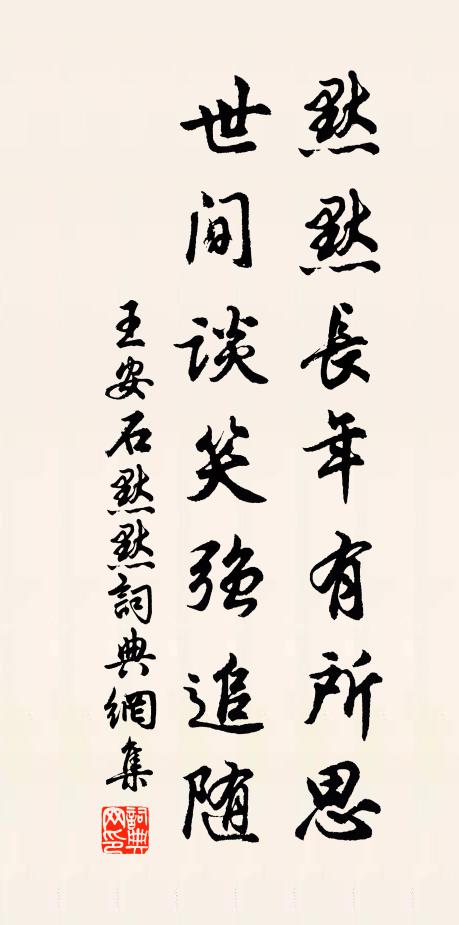 默默長年有所思
世間談笑強追随
王安石默默詞典網集
詞典网印